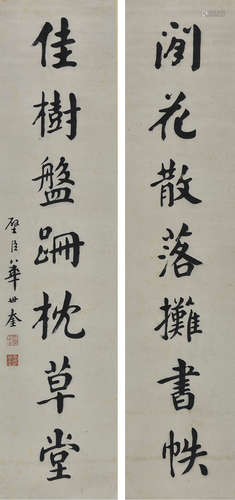 閒花散落攤書帙
佳樹盤跚枕草堂
璧臣華世奎